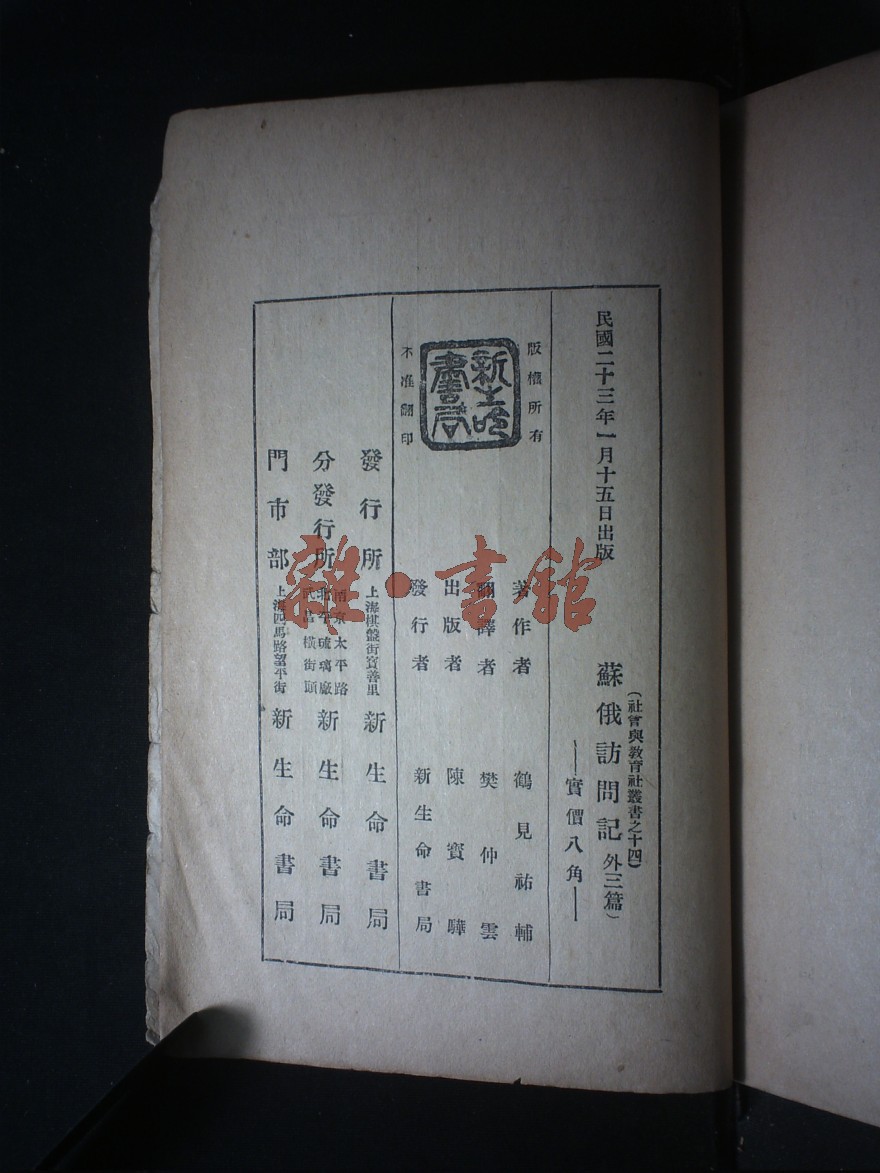 民國二十三年一月十五日出版
(社會與教育社叢書之十四)
蘇俄訪問記 外三篇)
——實價八角——
版權所有
新生命書局
不准翻印
著作者 鶴見祐輔
翻譯者 樊仲雲
出版者 陳寶驊
發行者 新生命書局
發行所 上海棋盤街寶善里 新生命書局
分發行所 南京太平路 北平琉璃廠 武昌橫街頭 新生命書局
門市部 上海四馬路望平街 新生命書局
雜·書館